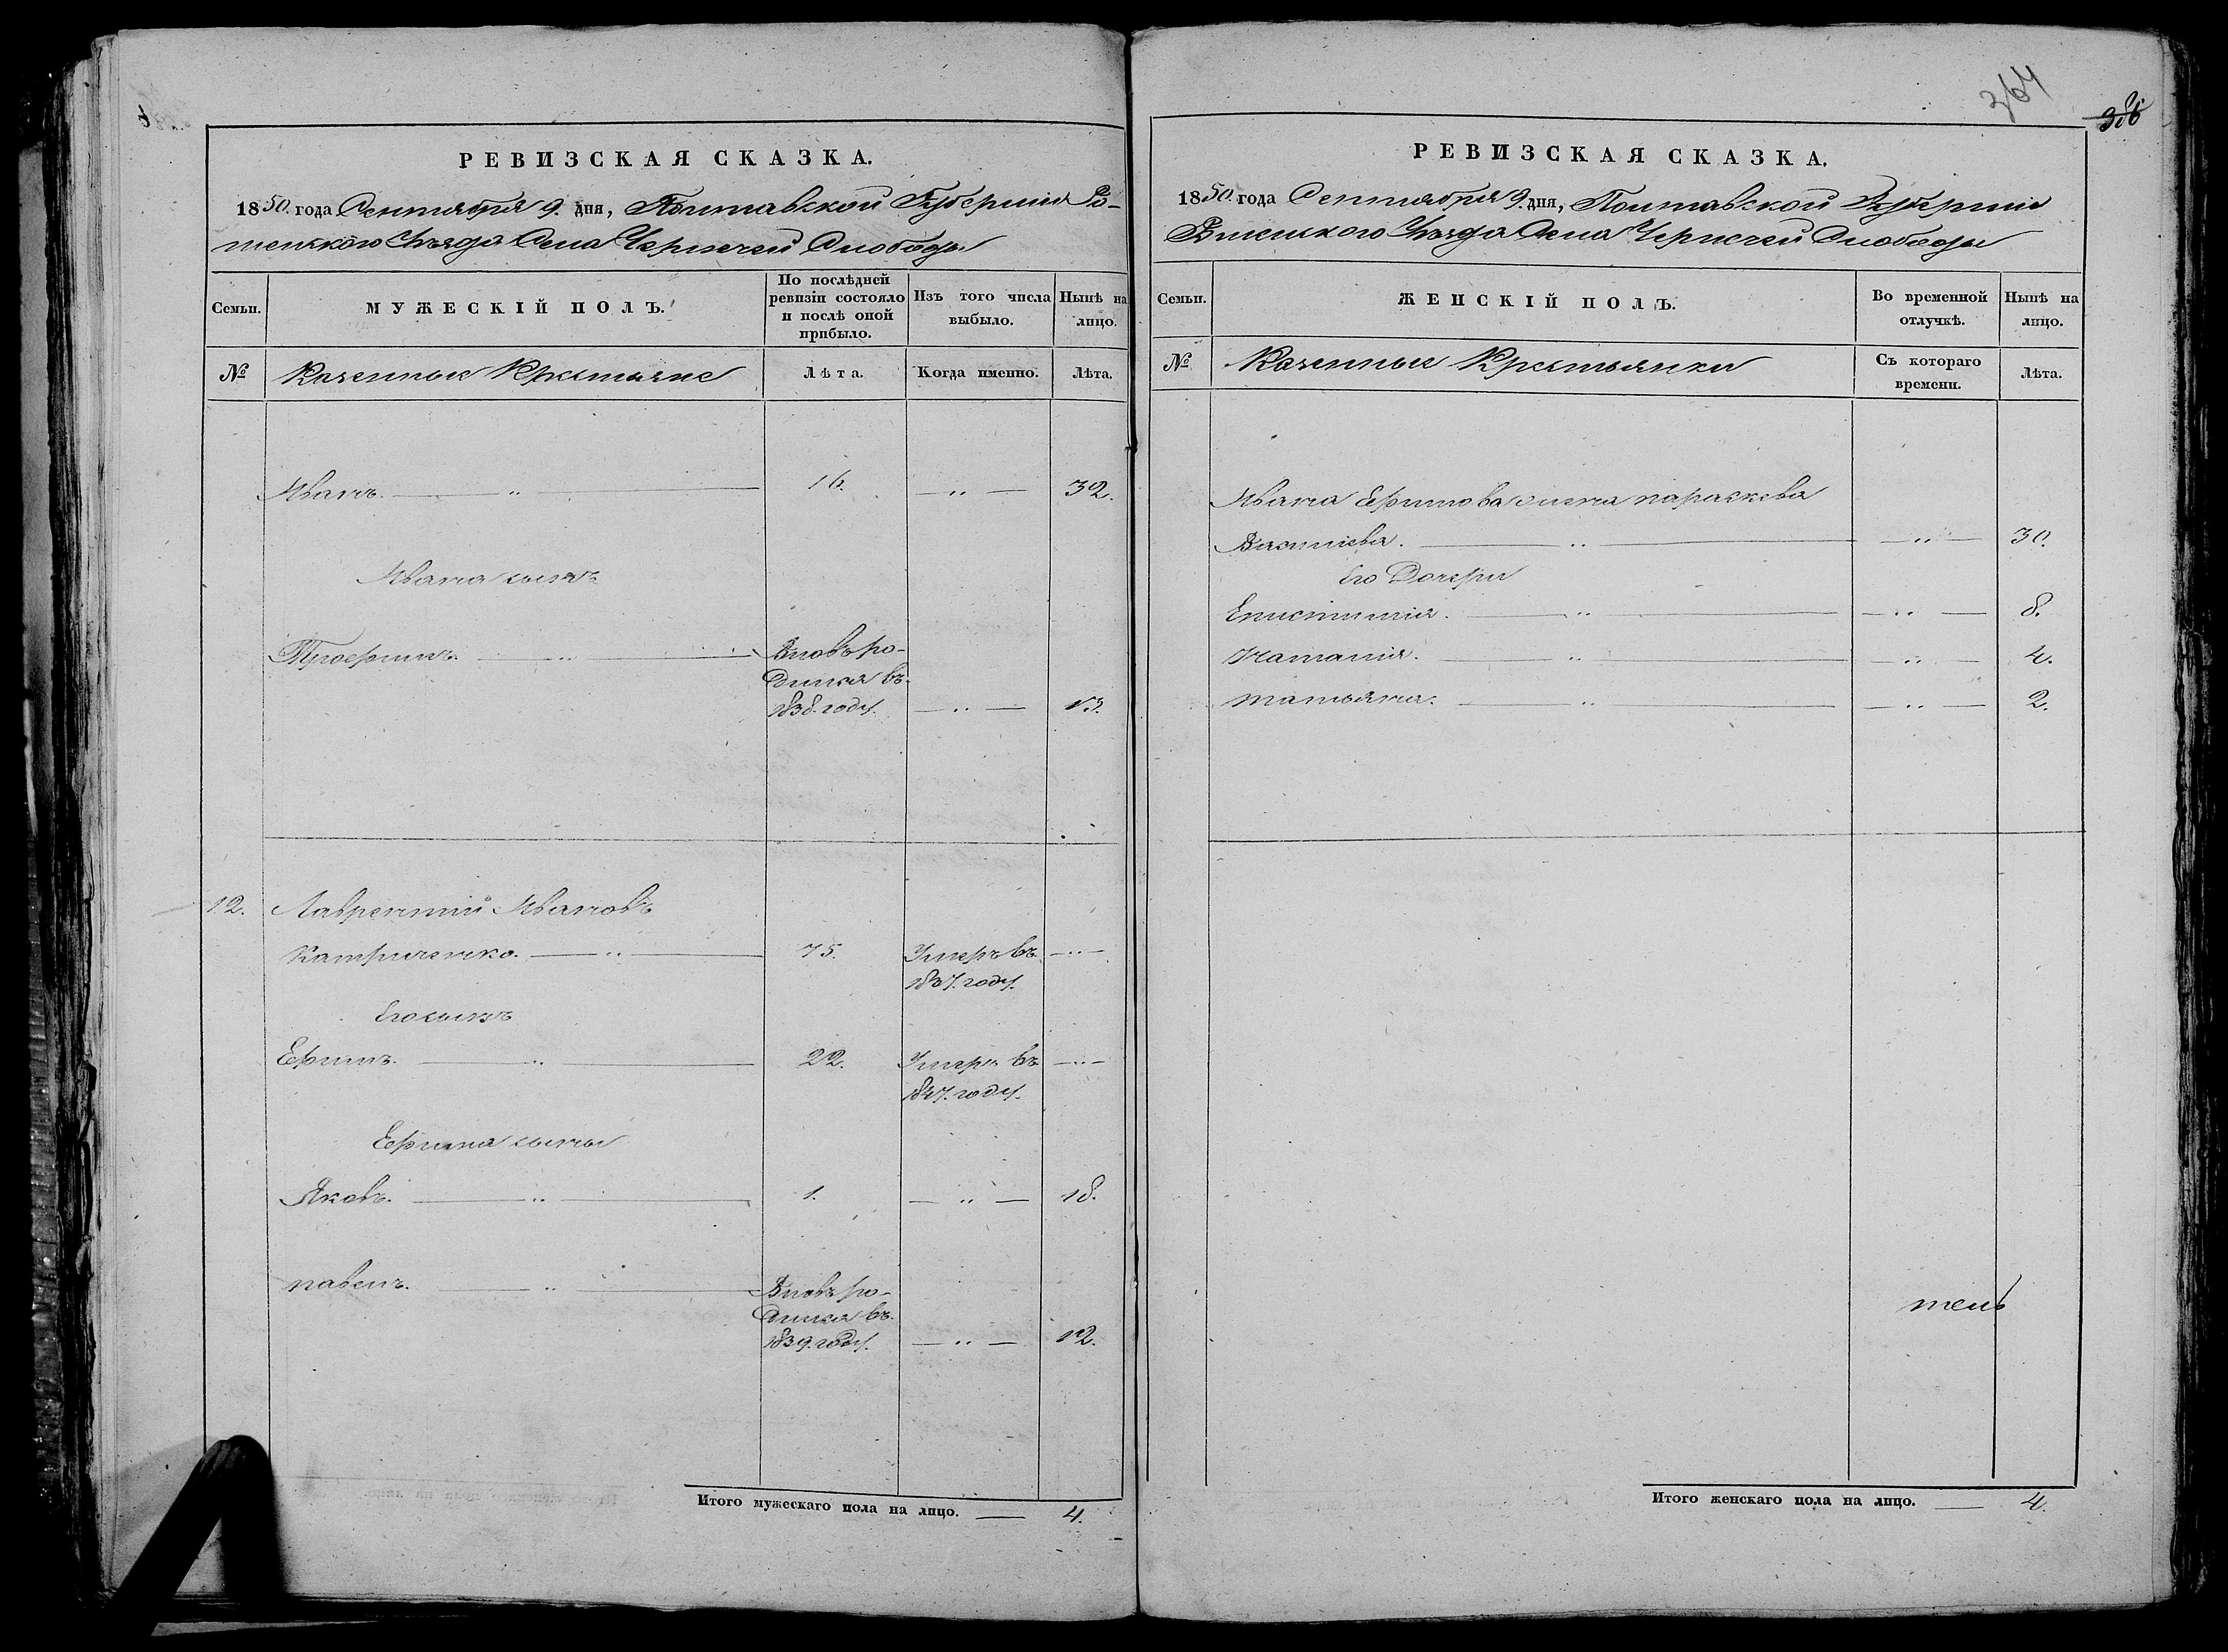 РЕВИЗСКАЯ СКАЗКА.
1850. года Сентября 9. дня, Полтавской Губернiи Ро-
менского Уѣзда Села Чернечей Слободы
Семьи.
МУЖЕСКIЙ ПОЛЪ.
По послѣдней ревизiи состояло и послѣ оной прибыло.
Изъ того числа выбыло.
Нынѣ на лицо.
№
Казенные Крестьяне
Лѣта.
Когда именно.
Лѣта.
Иванъ. — „ — 16. — „ — 32.
Ивана сынъ
— „ — Вновь ро-
дился въ
1838. году. — „ — 13.
12. Лаврентiй Ивановъ
Катриченко. — „ — 75. Умеръ въ — „ —
1837. году.
Его сынъ
Ефимъ. — „ — 22. Умеръ въ — „ —
1847. году.
Ефима сыны
Яковъ. — „ — 1. — „ — 18.
павелъ. — „ — Вновь ро-
дился въ
1839. году. — „ — 12.
Итого мужескаго пола на лицо. — 4.
364
386
РЕВИЗСКАЯ СКАЗКА.
1850. года Сентября 9. дня, Полтавской Губернiи
Роменского Уѣзда Села Чернечей Слободы
Семьи.
ЖЕНСКIЙ ПОЛЪ.
Во временной отлучкѣ.
Нынѣ на лицо.
№
Казенные Крестьянки
Съ котораго времени.
Лѣта.
Ивана Ефимова жена параскева
Васильева. — „ — — „ — 30.
Его Дочери
Епистимiя. — „ — — „ — 8.
Наталiя. — „ — — „ — 4.
татьяна. — „ — — „ — 2.
тель
Итого женскаго пола на лицо. — 4.